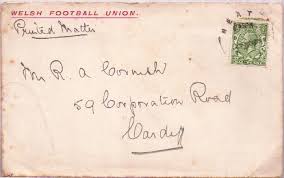 WELSH FOOTBALL UNION.
Printed Matter
Mr. R. A Cornish
59 Corporation Road
Cardiff